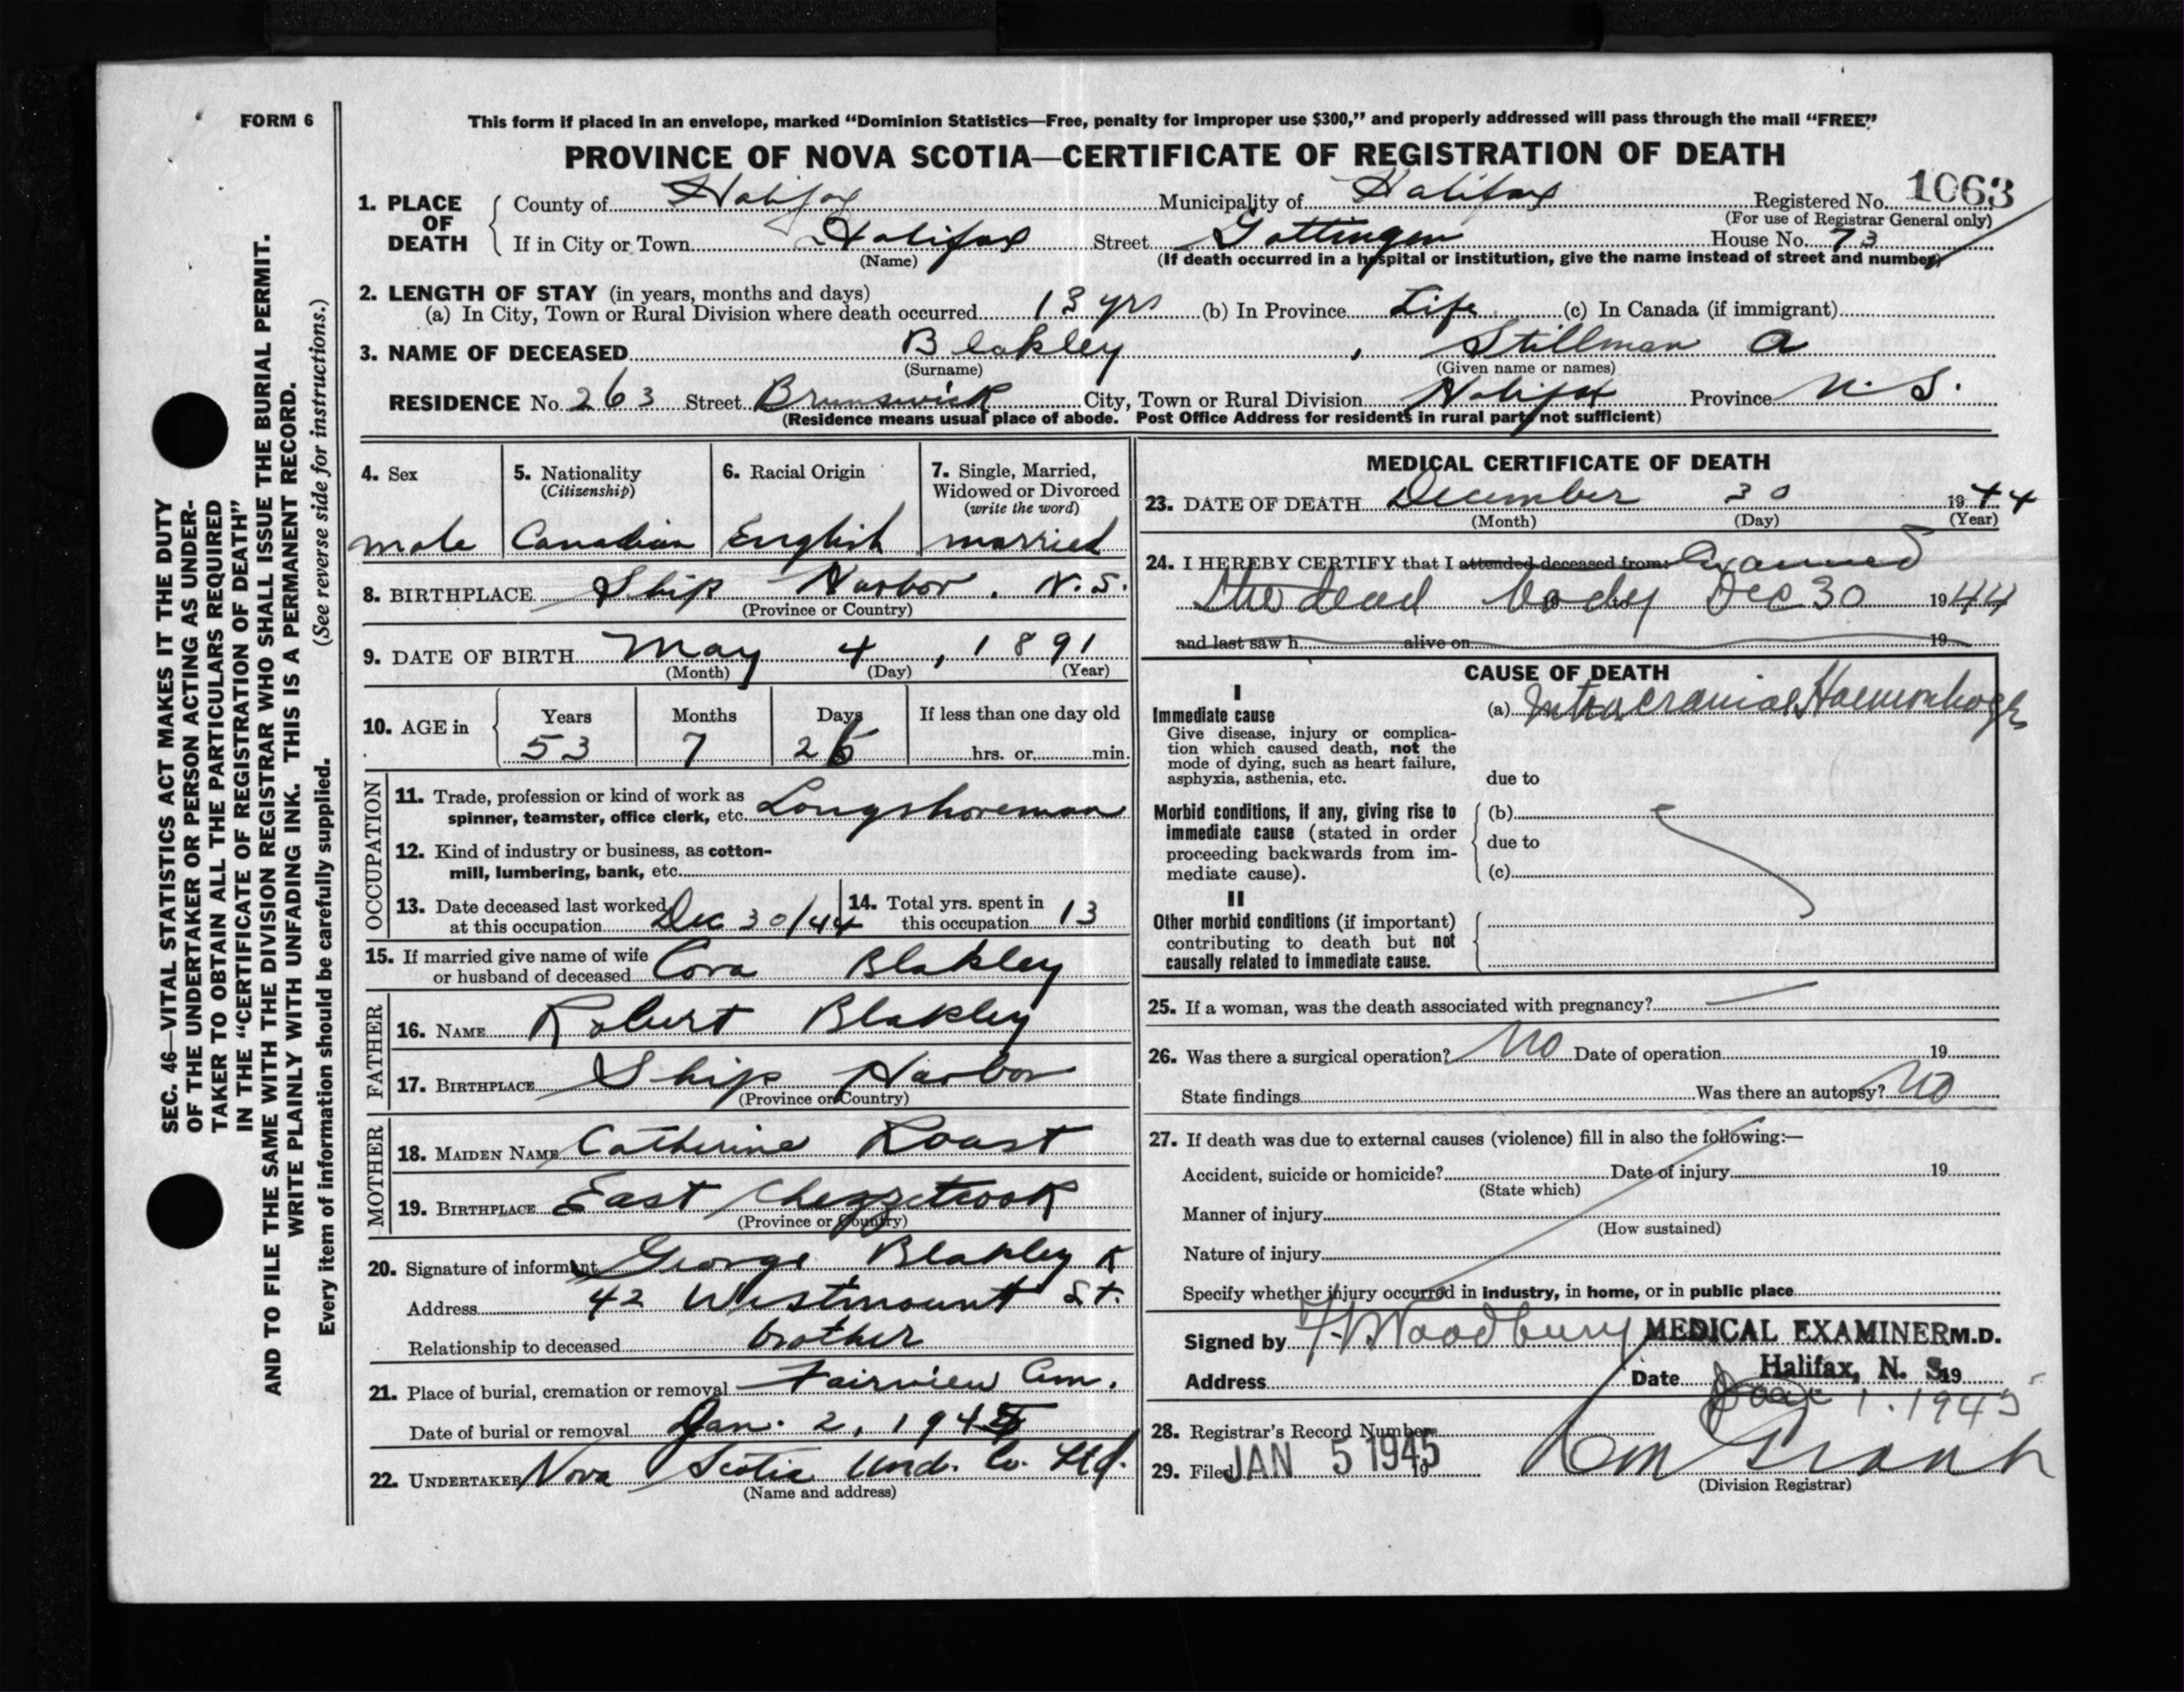 FORM 6
This form if placed in an envelope, marked “Dominion Statistics—Free, penalty for improper use $300,” and properly addressed will pass through the mail “FREE”
PROVINCE OF NOVA SCOTIA—CERTIFICATE OF REGISTRATION OF DEATH
1. PLACE OF DEATH
County of Halifax Municipality of Halifax Registered No. 1063
(For use of Registrar General only)
If in City or Town Halifax Street Gottingen House No. 73
(Name) (If death occurred in a hospital or institution, give the name instead of street and number)
2. LENGTH OF STAY (in years, months and days)
(a) In City, Town or Rural Division where death occurred 13 yrs (b) In Province Life (c) In Canada (if immigrant)
3. NAME OF DECEASED Blakley, Stillman A
(Surname) (Given name or names)
RESIDENCE No. 263 Street Brunswick City, Town or Rural Division Halifax Province N. S.
(Residence means usual place of abode. Post Office Address for residents in rural parts not sufficient)
4. Sex
male
5. Nationality
(Citizenship)
Canadian
6. Racial Origin
English
7. Single, Married,
Widowed or Divorced
(write the word)
married
8. BIRTHPLACE Ship Harbor, N.S.
(Province or Country)
9. DATE OF BIRTH May 4, 1891
(Month) (Day) (Year)
10. AGE in
Years Months Days If less than one day old
53 7 26 hrs. or min.
OCCUPATION
11. Trade, profession or kind of work as
spinner, teamster, office clerk, etc. Longshoreman
12. Kind of industry or business, as cotton-
mill, lumbering, bank, etc.
13. Date deceased last worked
at this occupation Dec 30/44
14. Total yrs. spent in
this occupation 13
15. If married give name of wife
or husband of deceased Cora Blakley
FATHER
16. NAME Robert Blakley
17. BIRTHPLACE Ship Harbor
(Province or Country)
MOTHER
18. MAIDEN NAME Catherine Roast
19. BIRTHPLACE East Chezzetcook
(Province or Country)
20. Signature of informant George Blakley
Address 42 Westmount St.
Relationship to deceased brother
21. Place of burial, cremation or removal Fairview Cem.
Date of burial or removal Jan. 2, 1945
22. UNDERTAKER Nova Scotia Und. Co. Ltd.
(Name and address)
MEDICAL CERTIFICATE OF DEATH
23. DATE OF DEATH December 30 1944
(Month) (Day) (Year)
24. I HEREBY CERTIFY that I attended deceased from: Examined
the dead body Dec 30 1944
and last saw h alive on 19
CAUSE OF DEATH
I
Immediate cause
Give disease, injury or complica-
tion which caused death, not the
mode of dying, such as heart failure,
asphyxia, asthenia, etc.
(a) Intracranial Haemorrhage
due to
Morbid conditions, if any, giving rise to
immediate cause (stated in order
proceeding backwards from im-
mediate cause).
(b)
due to
(c)
II
Other morbid conditions (if important)
contributing to death but not
causally related to immediate cause.
25. If a woman, was the death associated with pregnancy?
26. Was there a surgical operation? No Date of operation 19
State findings Was there an autopsy? No
27. If death was due to external causes (violence) fill in also the following:—
Accident, suicide or homicide? Date of injury 19
(State which)
Manner of injury
(How sustained)
Nature of injury
Specify whether injury occurred in industry, in home, or in public place
Signed by Woodbury MEDICAL EXAMINER M.D.
Halifax, N. S.
Address Date 19
Jan 1. 1945
28. Registrar's Record Number
29. Filed JAN 5 1945 19
Grant
(Division Registrar)
SEC. 46—VITAL STATISTICS ACT MAKES IT THE DUTY
OF THE UNDERTAKER OR PERSON ACTING AS UNDER-
TAKER TO OBTAIN ALL THE PARTICULARS REQUIRED
IN THE “CERTIFICATE OF REGISTRATION OF DEATH”
AND TO FILE THE SAME WITH THE DIVISION REGISTRAR WHO SHALL ISSUE THE BURIAL PERMIT.
WRITE PLAINLY WITH UNFADING INK. THIS IS A PERMANENT RECORD.
Every item of information should be carefully supplied. (See reverse side for instructions.)